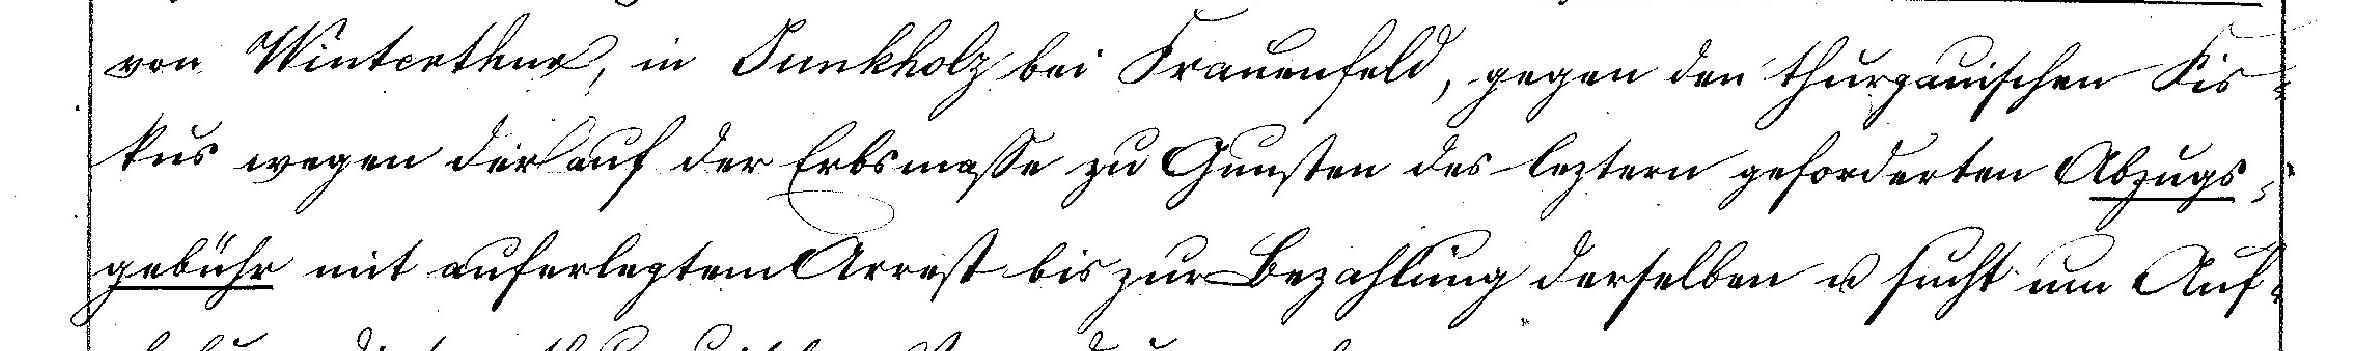 von Winterthur, in Dunkholz bei Frauenfeld, gegen den thurgauischen Fis-
kus wegen der auf der Erbsmasse zu Gunsten des leztern geforderten Abzugs-
gebühr mit auferlegtem Arrest bis zur Bezahlung derselben u sucht um Auf-